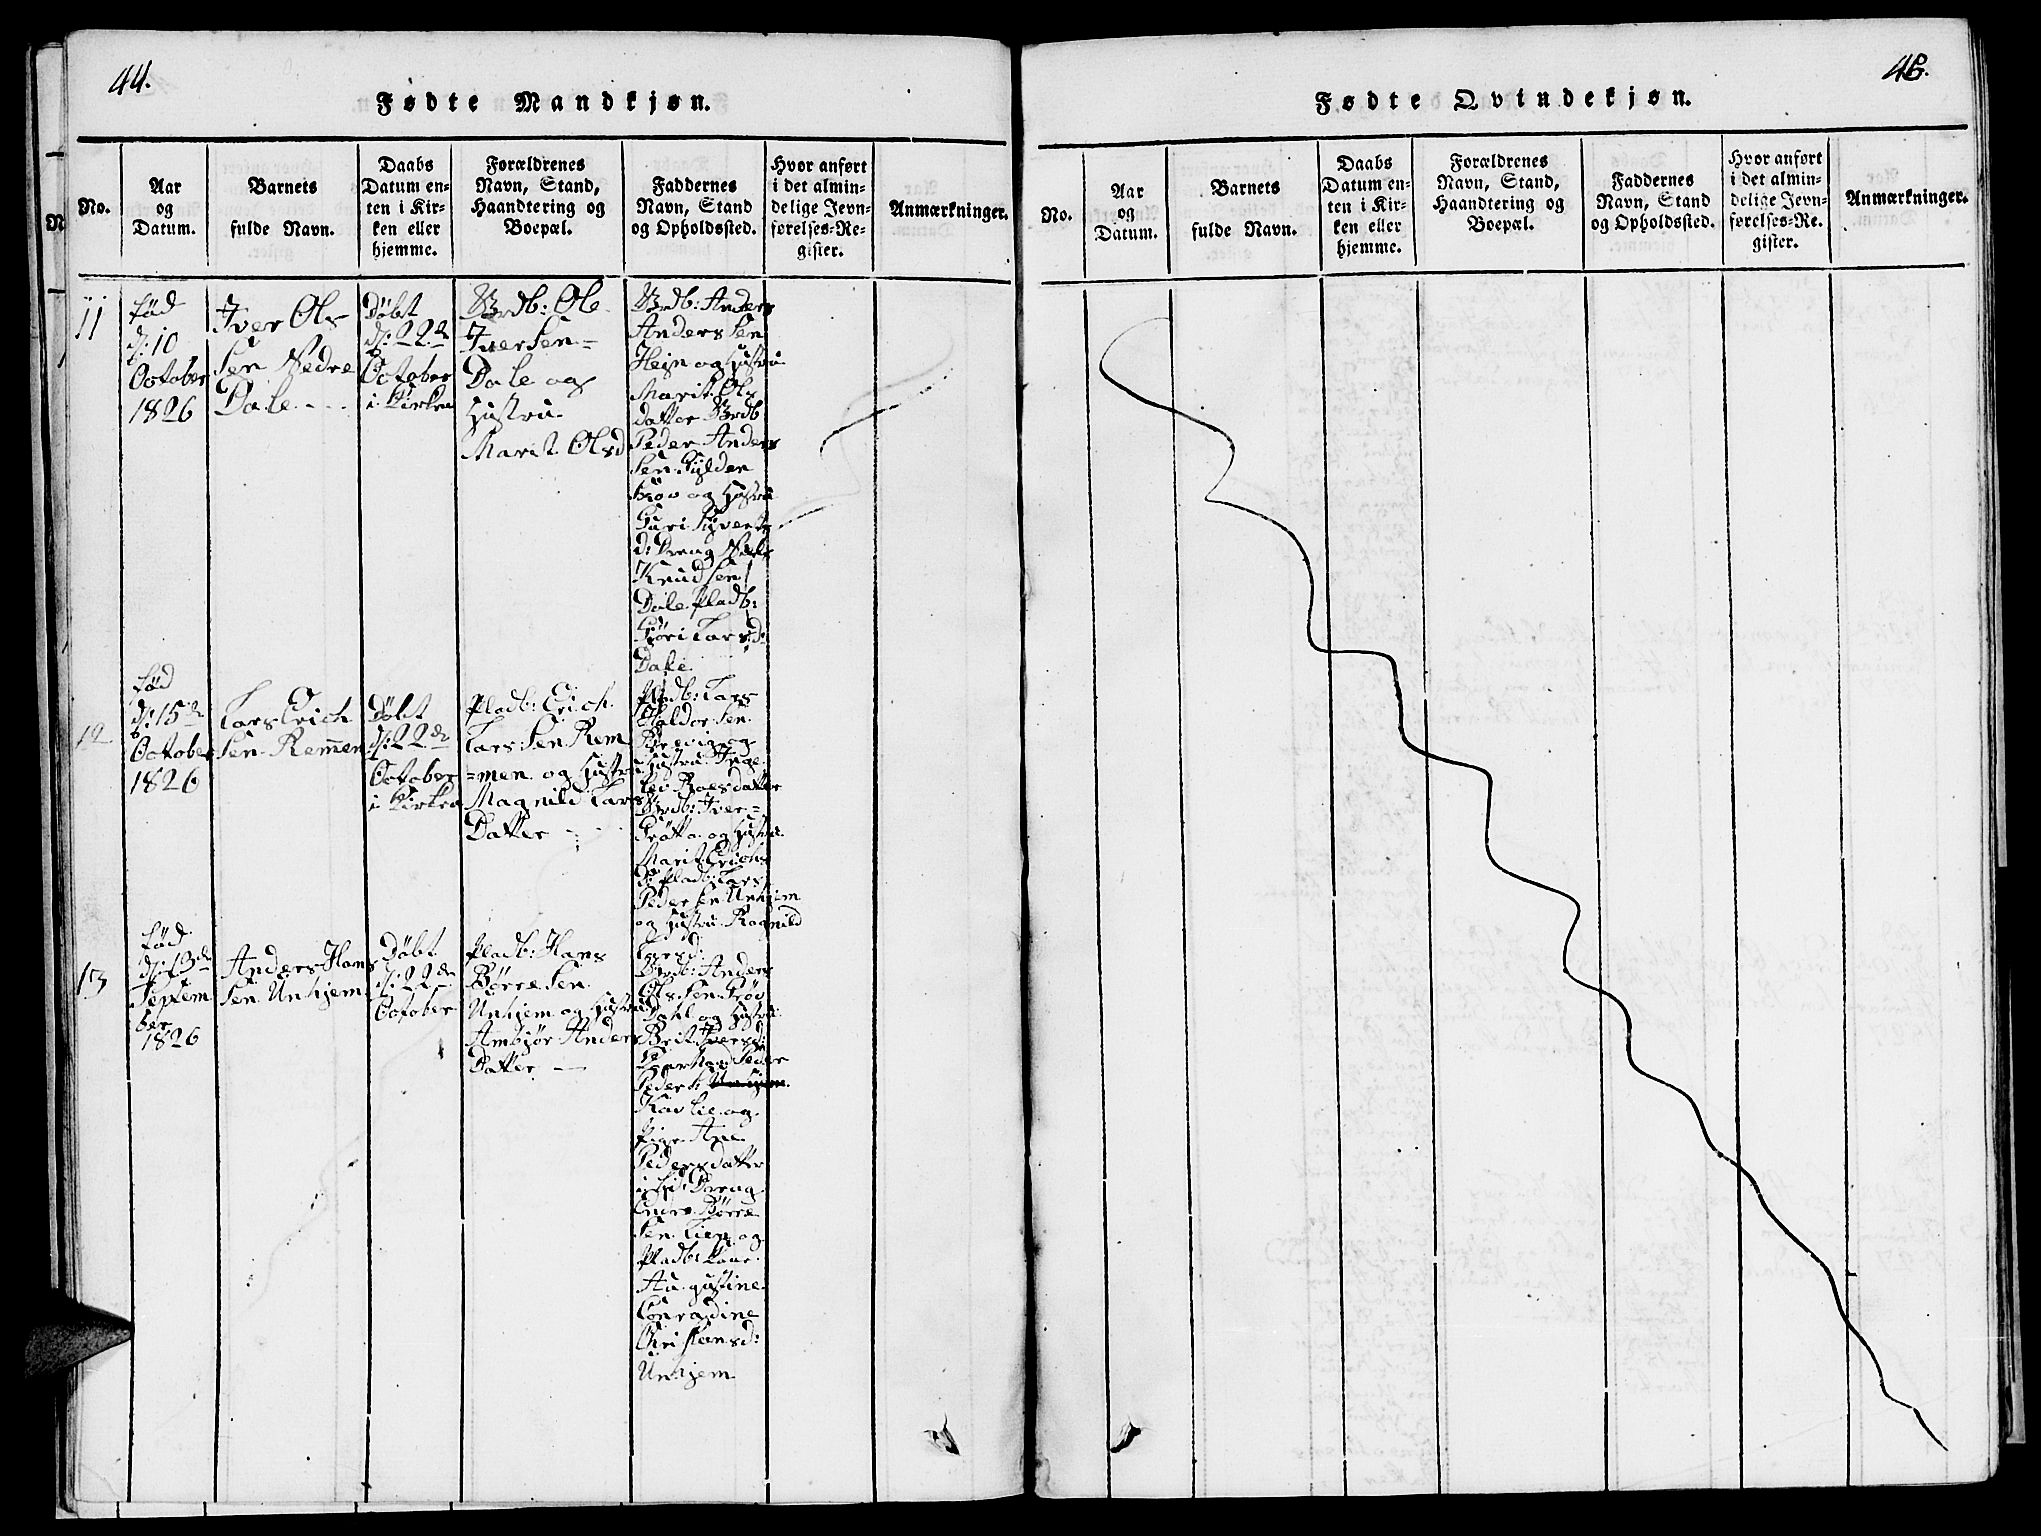 44.
Fødte Mandkjøn.
No.
Aar
og
Datum.
Barnets
fulde Navn.
Daabs
Datum en-
ten i Kir-
ken eller
hjemme.
Forældrenes
Navn, Stand,
Haandtering og
Boepæl.
Faddernes
Navn, Stand
og Opholdssted.
Hvor anført
i det almin-
delige Jevn-
førelses-Re-
gister.
Anmærkninger.
11
fød
d: 10
October
1826
Iver Ols
Sen Nedre
Dale
Døbt
d: 22de
October
i Kirken
Brdb: Ole
Iversen
Dale og
Hustru
Marit Olsd
Brdb: Anders
Anders Sen
Hejn og Hustru
Marit Ols
datter Brdb
Peder Anders
Sen Gylden
skov og Hustru
Guri Siverts
d: Dreng Niels
Knudsen
Dale Pladb:
Gjøri Larsd:
Dale
12
fød
d: 15de
October
1826
Lars Erich
Sen Remmen
Døbt
d: 22de
October
i Kirken
Pladb: Erich
Lars Sen Rem
=men og Hustru
Magnild Lars
Datter
Pladb: Lars
Haldor Sen
og
Hustru Inge
Roesdatter
Brdb: Iver
Grøtta og Hustru
Marit Erichs
d: Pladb: Lars
Peder Sen Unhjem
og Hustru Ragnild
Larsd:
13
fød
d: 13de
Septem
ber
1826
Anders Hans
Sen Unhjem
Døbt
d: 22de
October
Pladb: Hans
Børre Sen
Unhjem og Hustru
Ambjør Anders
Datter
Brdb: Anders
Ols Sen Frøv
Dahl og Hustru
Brit Iversd:
Peder
Peder
Kavlie og
Pige Ane
Pedersdatter
Dreng
Børre
Sen Lien og
Pladb: Kone
Augustine
Conradine
Christensd:
Unhjem
45.
Fødte Qvindekjøn.
No.
Aar
og
Datum.
Barnets
fulde Navn.
Daabs
Datum en-
ten i Kir-
ken eller
hjemme.
Forældrenes
Navn, Stand,
Haandtering og
Boepæl.
Faddernes
Navn, Stand
og Opholdssted.
Hvor anført
i det almin-
delige Jevn-
førelses-Re-
gister.
Anmærkninger.